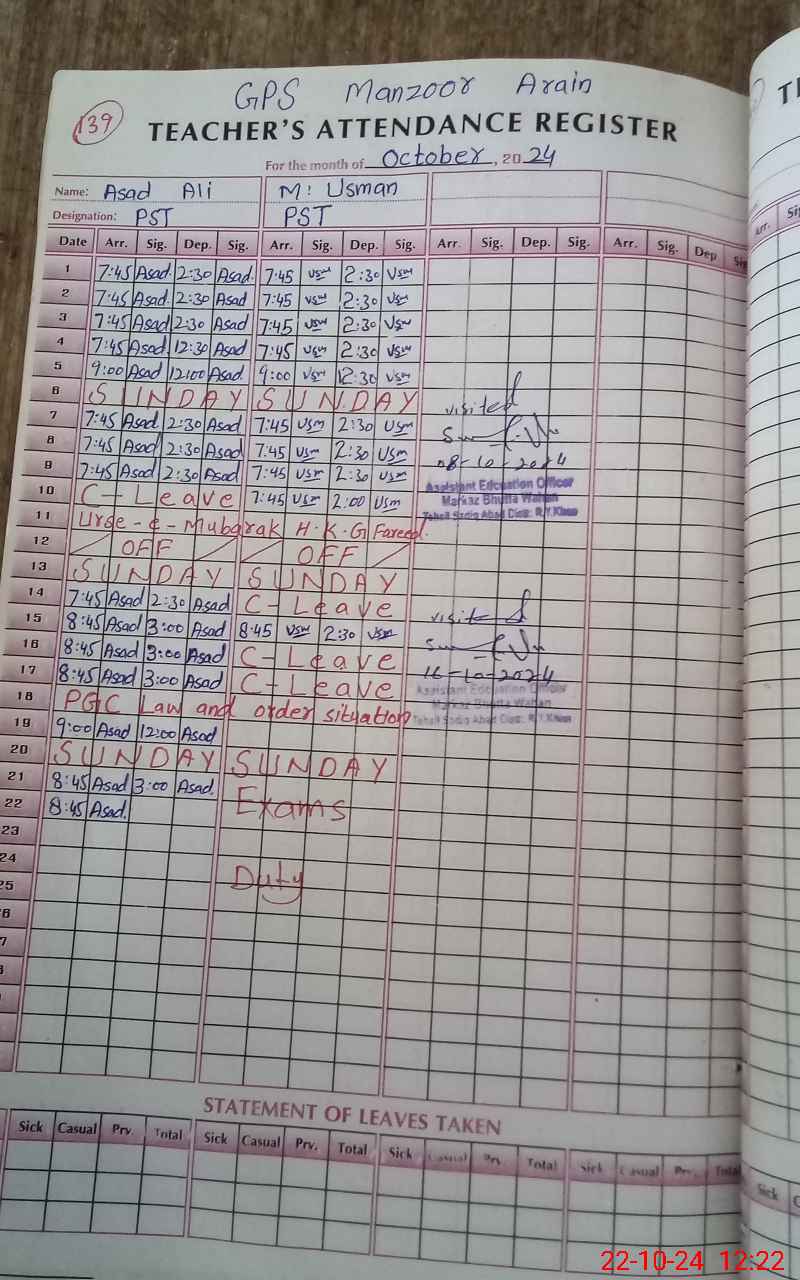 GPS Manzoor Arain
139
TEACHER'S ATTENDANCE REGISTER
For the month of October, 2024
Name: Asad Ali M: Usman
Designation: PST PST
Date Arr. Sig. Dep. Sig. Arr. Sig. Dep. Sig. Arr. Sig. Dep. Sig. Arr. Sig. Dep Sig
1 7:45 Asad. 2:30 Asad. 7:45 Usm 2:30 Usm
2 7:45 Asad 2:30 Asad 7:45 Usm 2:30 Usm
3 7:45 Asad 2:30 Asad 7:45 Usm 2:30 Usm
4 7:45 Asad 12:30 Asad 7:45 Usm 2:30 Usm
5 9:00 Asad 12:00 Asad 9:00 Usm 12:30 Usm
6 SUNDAY SUNDAY visited
7 7:45 Asad 2:30 Asad 7:45 Usm 2:30 Usm
8 7:45 Asad 2:30 Asad 7:45 Usm 2:30 Usm 08-10-2024
9 7:45 Asad 2:30 Asad 7:45 Usm 2:30 Usm Assistant Education Officer
10 C-Leave 7:45 Usm 2:00 Usm Markaz Bhutta Wahan
11 Urse-e-Mubarak H.K.G Fareed. Tehsil Sadiq Abad Distt: R.Y.Khan
12 OFF OFF
13 SUNDAY SUNDAY
14 7:45 Asad 2:30 Asad C-Leave visited
15 8:45 Asad 3:00 Asad 8:45 Usm 2:30 Usm
16 8:45 Asad 3:00 Asad C-Leave 16-10-2024
17 8:45 Asad 3:00 Asad C-Leave Assistant Education Officer
Markaz Bhutta Wahan
18 PGC Law and order situation Tehsil Sadiq Abad Distt: R.Y.Khan
19 9:00 Asad 12:00 Asad
20 SUNDAY SUNDAY
21 8:45 Asad 3:00 Asad.
22 8:45 Asad. Exams
23
24
25 Duty
6
7
STATEMENT OF LEAVES TAKEN
Sick Casual Prv. Total Sick Casual Prv. Total Sick Casual Prv. Total Sick Casual Prv. Total
Sick
22-10-24 12:22